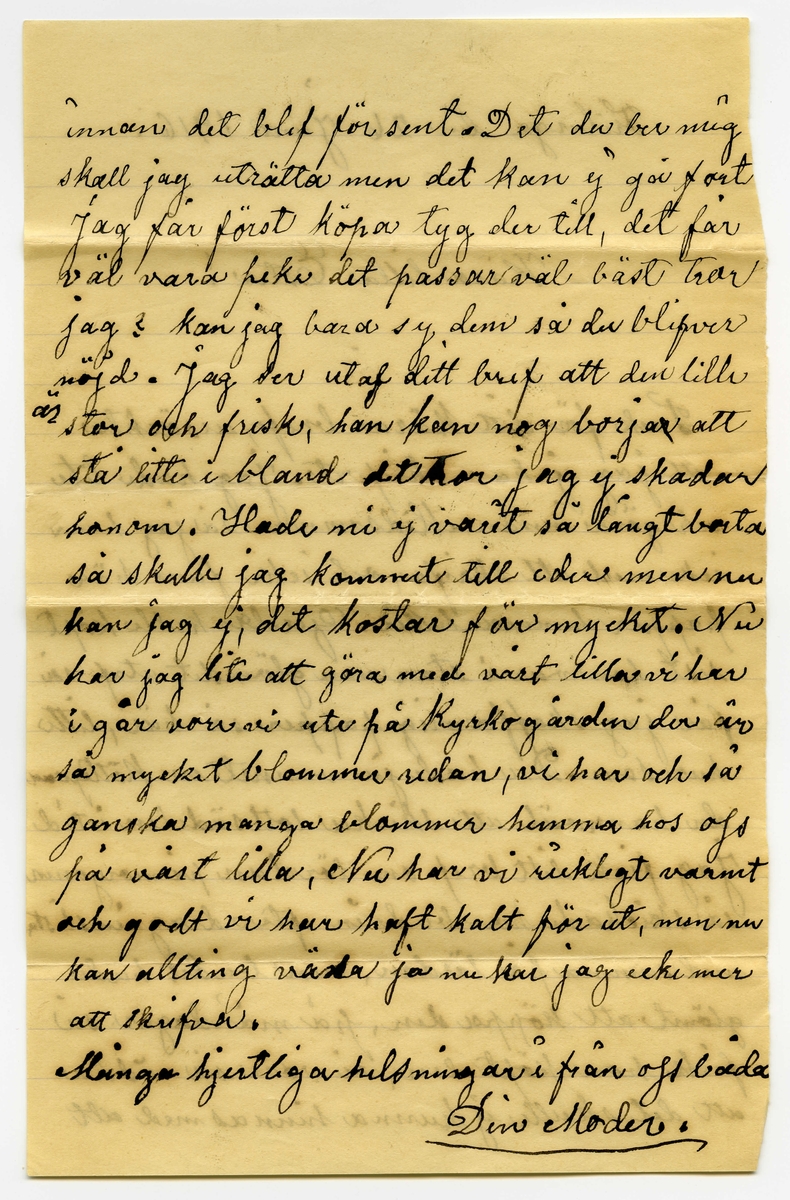 innan det blef för sent. Det du ber mig
skall jag uträtta men det kan ej gå fort
Jag får först köpa tyg der till, det får
väl vara peke det passar väl bäst tror
jag? kan jag bara sy dem så du blifver
nöjd. Jag ser utaf ditt bref att den lille
är stor och frisk, han kan nog borjar att
stå lite i bland det tror jag ej skadar
honom. Hade ni ej varit så långt borta
så skulle jag kommit till eder men nu
kan jag ej, det kostar för mycket. Nu
har jag lite att göra med vårt lilla vi har
i går vore vi ute på Kyrkogården der är
så mycket blommer redan, vi har och så
ganska manga blommer hemma hos ofs
på vårt lilla, Nu har vi rikligt varmt
och godt vi har haft kalt för ut, men nu
kan allting växa ja nu har jag icke mer
att skrifva.
Många hjertliga helsningar i från ofs båda
Din Moder.